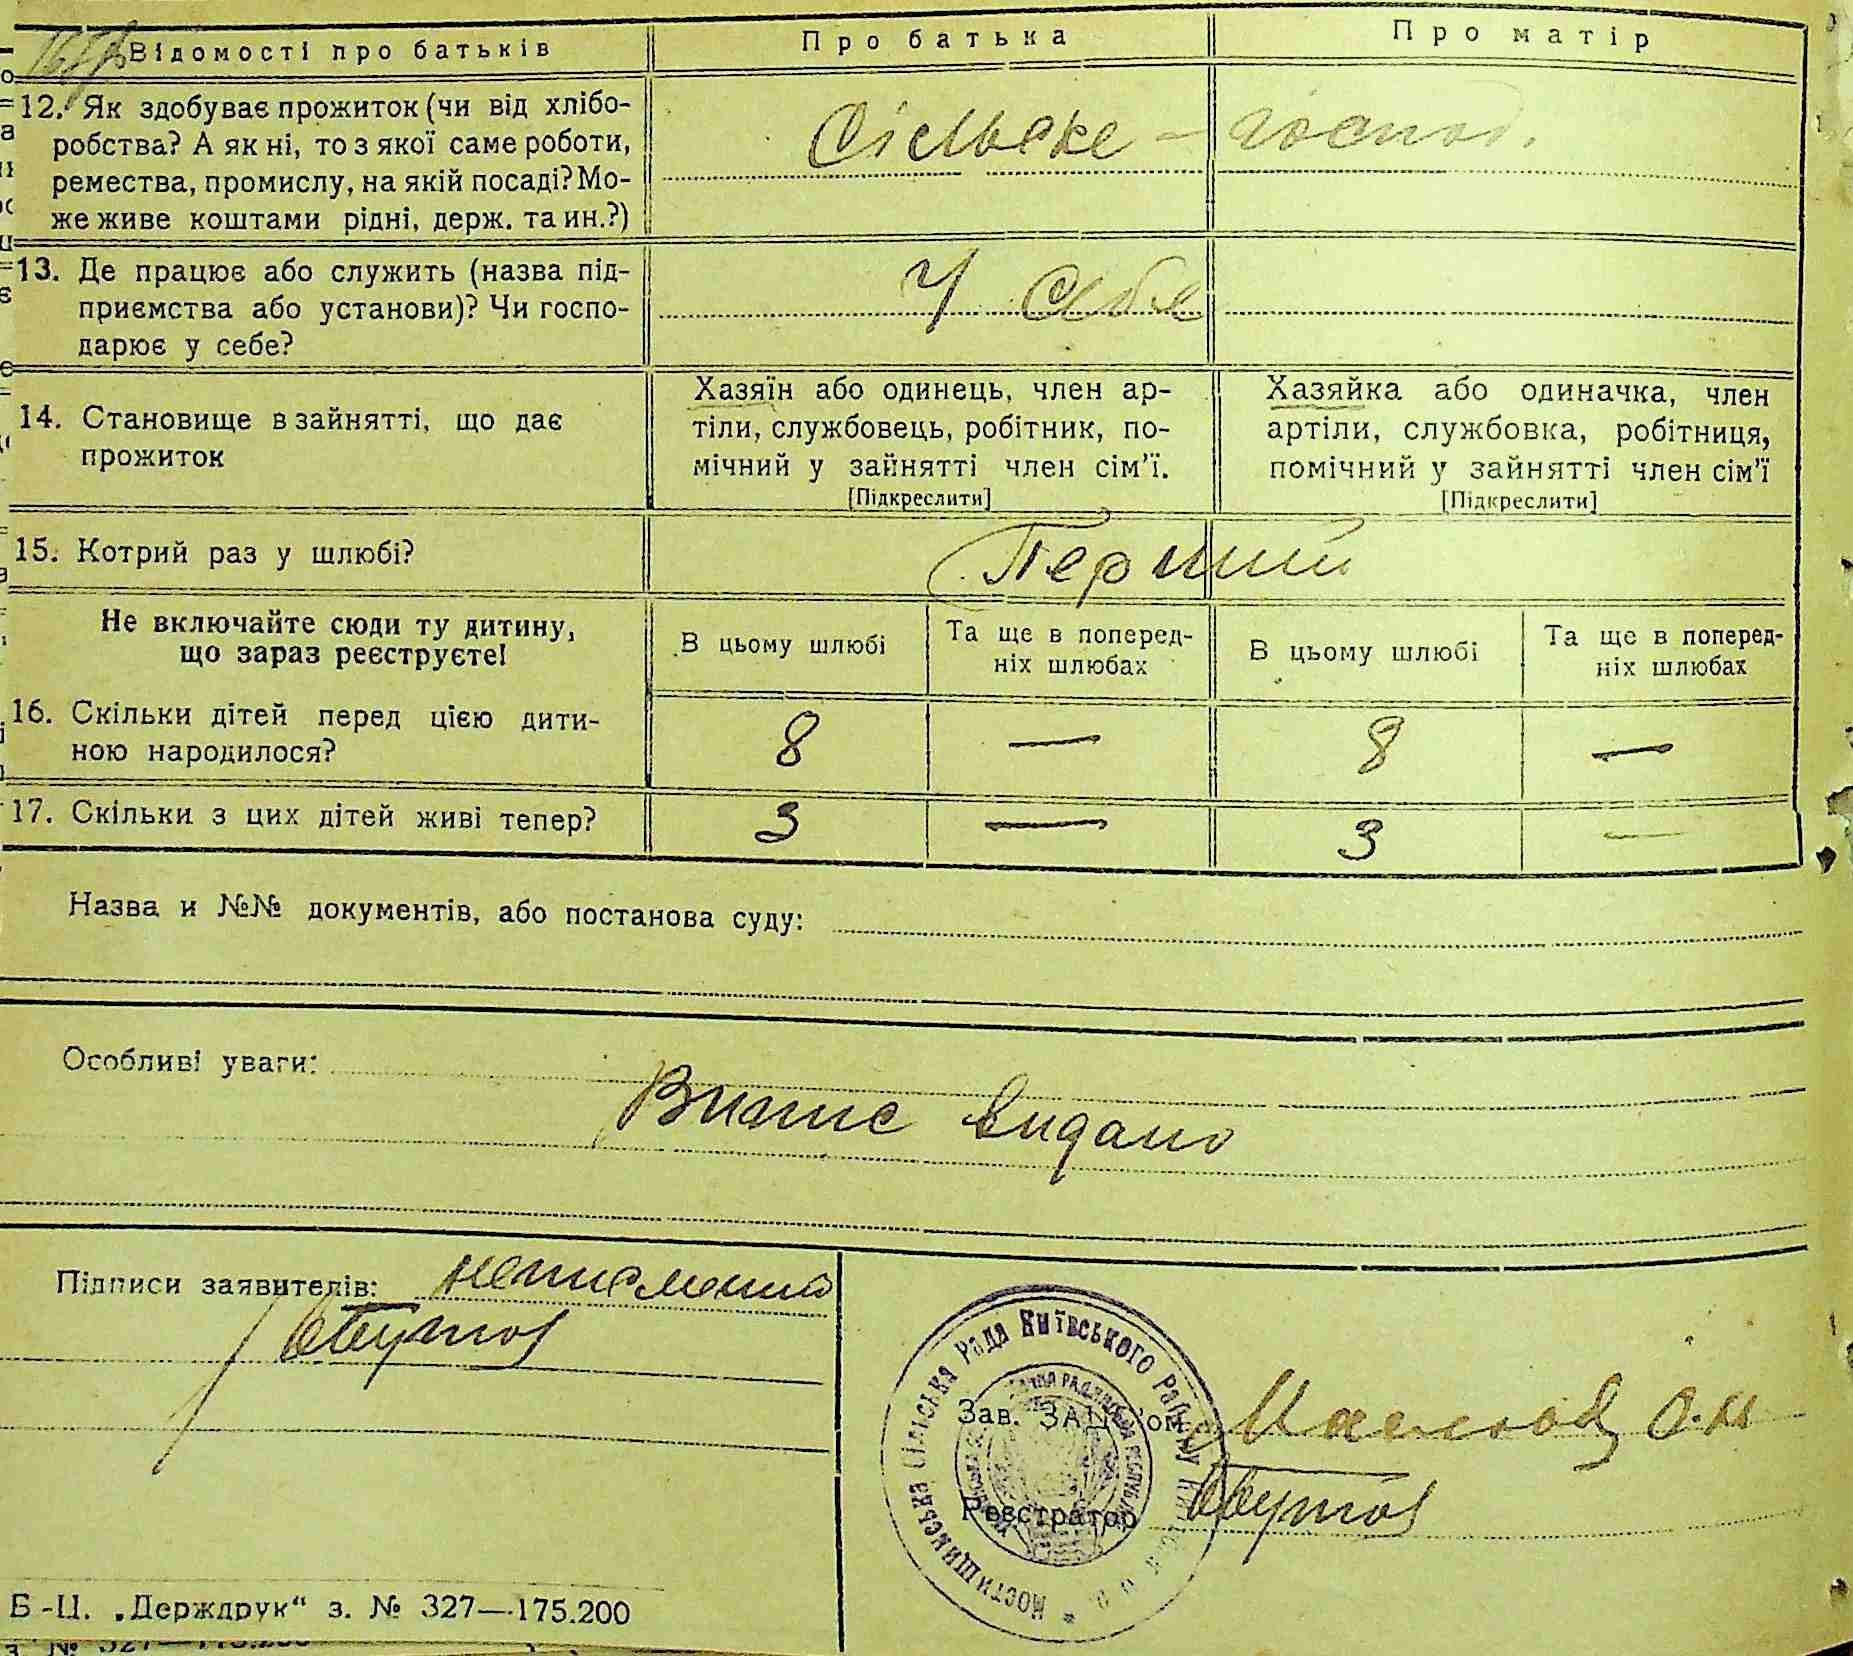 Відомості про батьків
Про батька
Про матір
12. Як здобуває прожиток (чи від хлібо-
робства? А як ні, то з якої саме роботи,
ремества, промислу, на якій посаді? Мо-
же живе коштами рідні, держ. та ин.?)
Сільське - господ.
13. Де працює або служить (назва під-
приємства або установи)? Чи госпо-
дарює у себе?
У себе
14. Становище в зайнятті, що дає
прожиток
Хазяїн або одинець, член ар-
тіли, службовець, робітник, по-
мічний у зайнятті член сім'ї.
[Підкреслити]
Хазяйка або одиначка, член
артіли, службовка, робітниця,
помічний у зайнятті член сім'ї
[Підкреслити]
15. Котрий раз у шлюбі?
Перший
Не включайте сюди ту дитину,
що зараз реєструєте!
В цьому шлюбі
Та ще в поперед-
ніх шлюбах
В цьому шлюбі
Та ще в поперед-
ніх шлюбах
16. Скільки дітей перед цією дити-
ною народилося?
8 — 8 —
17. Скільки з цих дітей живі тепер?
3 — 3 —
Назва и №№ документів, або постанова суду:
Особливі уваги:
Випис видано
Підписи заявителів: неписьменний
Зав. ЗАЦ'ом
Реєстратор
Мостищинська Сільська Рада Київського Району
Б-Ц. „Держдрук“ з. № 327—175.200